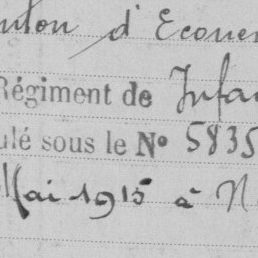 d'Ecouen
Régiment de Infa
ulé sous le Nº 5835
Mai 1915 à N